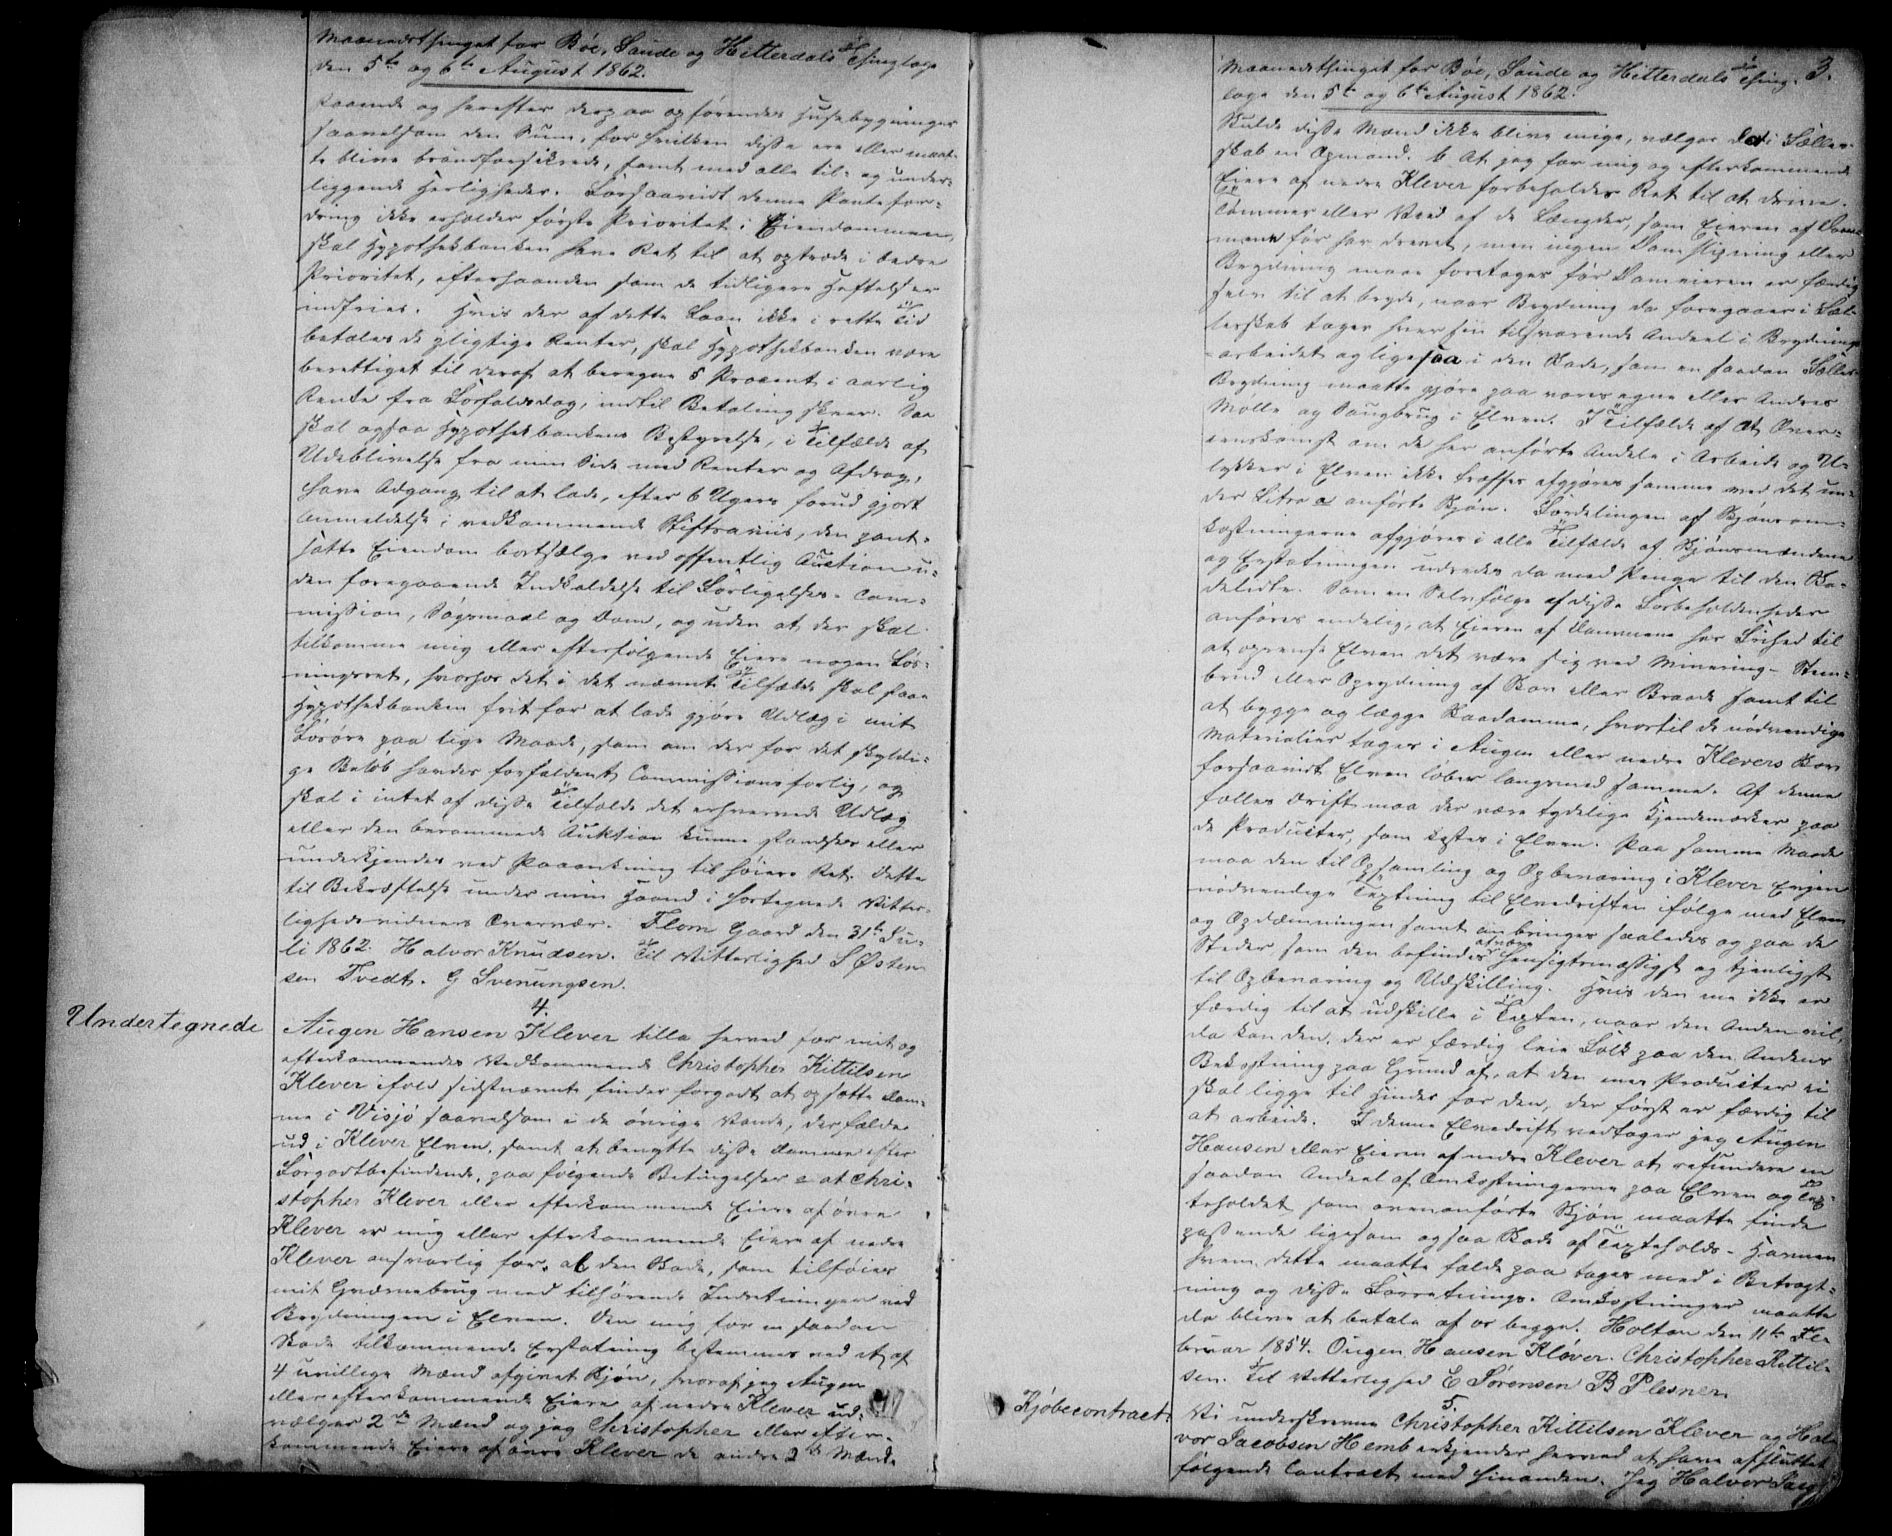 Maanedsthinget for Bøe, Saude og Hitterdals Thinglage
den 5te og 6te August 1862.
staaende og herefter derpaa opførendes Husebygninger
saavelsom den Sum, for hvilken disse ere eller maat-
te blive brandforsikrede, samt med alle til- og under-
liggende Herligheder. Forsaavidt denne Pantefor-
dring ikke erholder første Prioritet i Eiendommen,
skal Hypothekbanken have Ret til at optræde i bedre
Prioritet, efterhaanden som de tidligere Heftelser
indfries. Hvis der af dette Laan ikke i rette Tid
betales de pligtige Renter, skal Hypothekbanken være
berettiget til deraf at beregne 5 Procent i aarlig
Rente fra Forfaldsdag, indtil Betaling skeer. Saa
skal ogsaa Hypothekbankens Bestyrelse, i Tilfælde af
Udeblivelse fra min Side med Renter og Afdrag,
have Adgang til at lade, efter 6 Ugers forud gjort
Anmeldelse i vedkommende Stiftsavis, den pant-
satte Eiendom bortsælge ved offentlig Auction u-
den foregaaende Indkaldelse til Forligelses-Com-
mission, Søgsmaal og Dom, og uden at der skal
tilkomme mig eller efterfølgende Eiere nogen Løs-
ningsret, hvorhos det i det nævnte Tilfælde skal staa
Hypothekbanken frit for at lade gjøre Udlæg i mit
Løsøre paa lige Maade, som om der for det skyldi-
ge Beløb havdes forfaldent Commissionsforlig, og
skal i intet af disse Tilfælde det erhvervede Udlæg
eller den berammede Auktion kunne standses eller
underkjendes ved Paaankning til høiere Ret. Dette
til Bekræftelse under min Haand i hostegnede Vitter-
lighedsvidners Overvær. Flom Gaard den 31te Ju-
li 1862. Halvor Knudsen. Til Vitterlighed S Østen-
sen Tvedt. G Svenungsen.
4.
Undertegnede Augen Hansen Klever tilla herved for mit og
efterkommendes Vedkommende Christopher Kittilsen
Klever ifald sidstnævnte finder forgodt at opsætte Dam-
me i Visjø saavelsom i de øvrige Vande, der falde
ud i Klever Elven, samt at benytte disse Damme efter
Forgodtbefindende, paa følgende Betingelser a at Chri-
stopher Klever eller efterkommende Eiere af øvre
Klever er mig eller efterkommende Eiere af nedre
Klever ansvarlig for al den Skade, som tilføies
mit Qværnebrug med tilhørende Indretninger ved
Brydningen i Elven. Den mig for en saadan
Skade tilkommende Erstatning bestemmes ved et af
4 uvillige Mænd afgivet Skjøn, hvoraf jeg Augen
eller efterkommende Eiere af nedre Klever ud-
vælger 2de Mænd og jeg Christopher eller efter-
kommende Eiere af øvre Klever de andre 2de Mænd.
Maanedsthinget for Bøe, Saude og Hitterdals Thing- 3.
lage den 5te og 6te August 1862.
Skulde disse Mænd ikke blive enige, vælger de i Fælles-
skab en Opmand. b At jeg for mig og efterkommende
Eiere af nedre Klever forbeholder Ret til at drive
Tømmer eller Veed af de Længder, som Eieren af Dam-
mene før har drevet, men ingen Damslipning eller
Brydning maae foretages før Dameieren er færdig
selv til at bryde, naar Brydning da foregaaer i Fæl-
lesskab tager hver sin tilsvarende Andeel i Brydnings-
arbeidet og ligesaa i den Skade, som en saadan Fælles-
Brydning maatte gjøre paa vores egne eller Andres
Mølle og Saugbrug i Elven. I Tilfælde af at Over-
eenskomst om de her anførte Andele i Arbeide og U-
lykker i Elven ikke træffes afgjøres samme ved det un-
der Litra a anførte Skjøn. Fordelingen af Skjønsom-
kostningerne afgjøres i alle Tilfælde af Skjønsmændene
og Erstatningen udredes da med Penge til den Ska-
delidte. Som en Selvfølge af disse Forbeholdenheder
anføres endelig, at Eieren af Dammene har Frihed til
at oprense Elven det være sig ved Minering - Steen-
brud eller Oprydning af Skov eller Braade samt til
at bygge og lægge Skaadamme, hvortil de nødvendige
Materialier tages i Augen eller nedre Klevers Skov
forsaavidt Elven løber langsmed samme. Af denne
fælles Drift maa der være tydelige Kjendemærker paa
de Producter, som kastes i Elven. Paa samme Maade
maa den til Opsamling og Opbevaring i Klever Evjen
nødvendige Tæxtning til Elvedriften ifølge med Elven
og Opdæmningen samt anbringes saaledes og paa de
Steder som den befindes at være hensigtsmæssigst og tjenligst
til Opbevaring og Udskilling. Hvis den ene ikke er
færdig til at udskille i Tæxten, naar den Anden vil,
da kan den, der er færdig leie Folk paa den Andens
Bekostning paa Grund af, at den enes Producter ei
skal ligge til Hinder for den, der først er færdig til
at arbeide. I denne Elvedrift vedtager jeg Augen
Hansen eller Eieren af nedre Klever at refundere en
saadan Andeel af Omkostningerne paa Elven og Tæx-
teholdet som ovenanførte Skjøn maatte finde
passende ligesom ogsaa Skade af Tæxteholds-
hvem dette maatte falde paa tages med i Betragt-
ning og disse Forretnings-Omkostninger maatte
da blive at betale af os begge. Holtan den 11te Fe-
bruar 1854. Ougen Hansen Klever. Christopher Kittil-
sen. Til Vitterlighed E Sørensen B Plesner.
5.
Kjøbecontract. Vi underskrevne Christopher Kittilsen Klever og Hal-
vor Jacobsen Hemb erkjender herved at have afsluttet
følgende Contract med hinanden. Jeg Halvor Jacob-